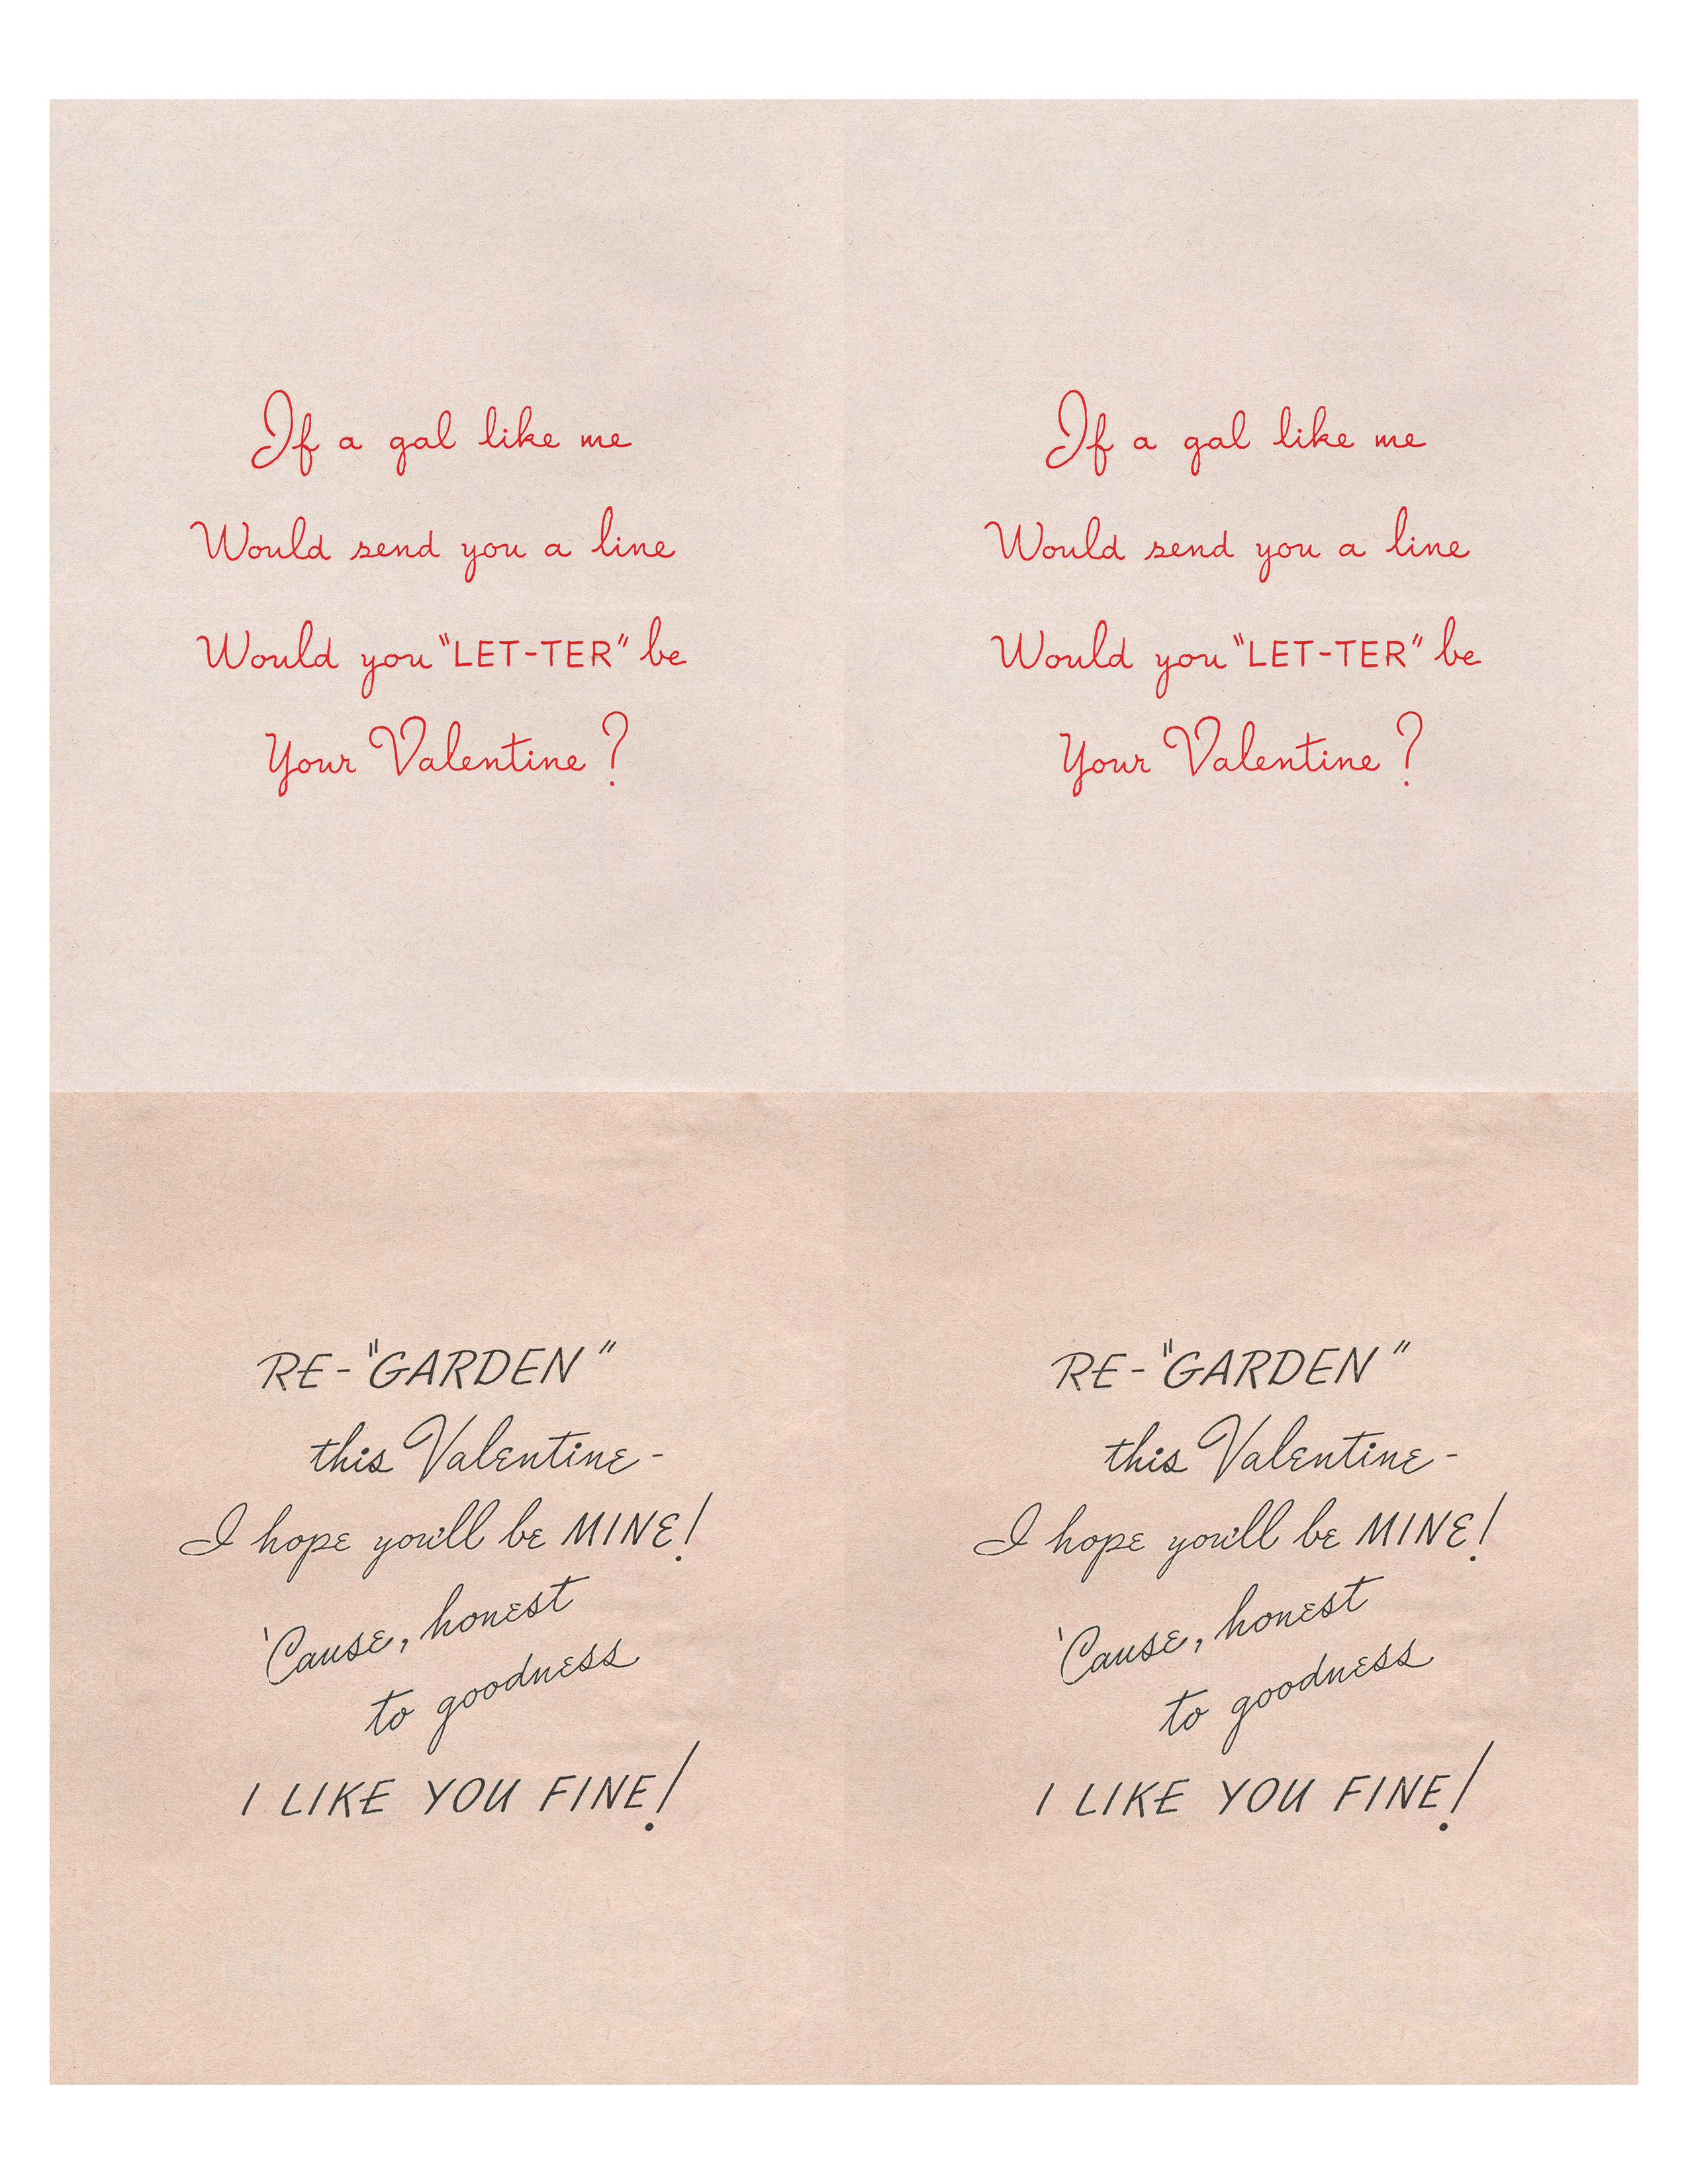 If a gal like me
Would send you a line
Would you "LET-TER" be
Your Valentine?
If a gal like me
Would send you a line
Would you "LET-TER" be
Your Valentine?
RE-"GARDEN"
this Valentine-
I hope you'll be MINE!
'Cause, honest
to goodness
I LIKE YOU FINE!
RE-"GARDEN"
this Valentine-
I hope you'll be MINE!
'Cause, honest
to goodness
I LIKE YOU FINE!